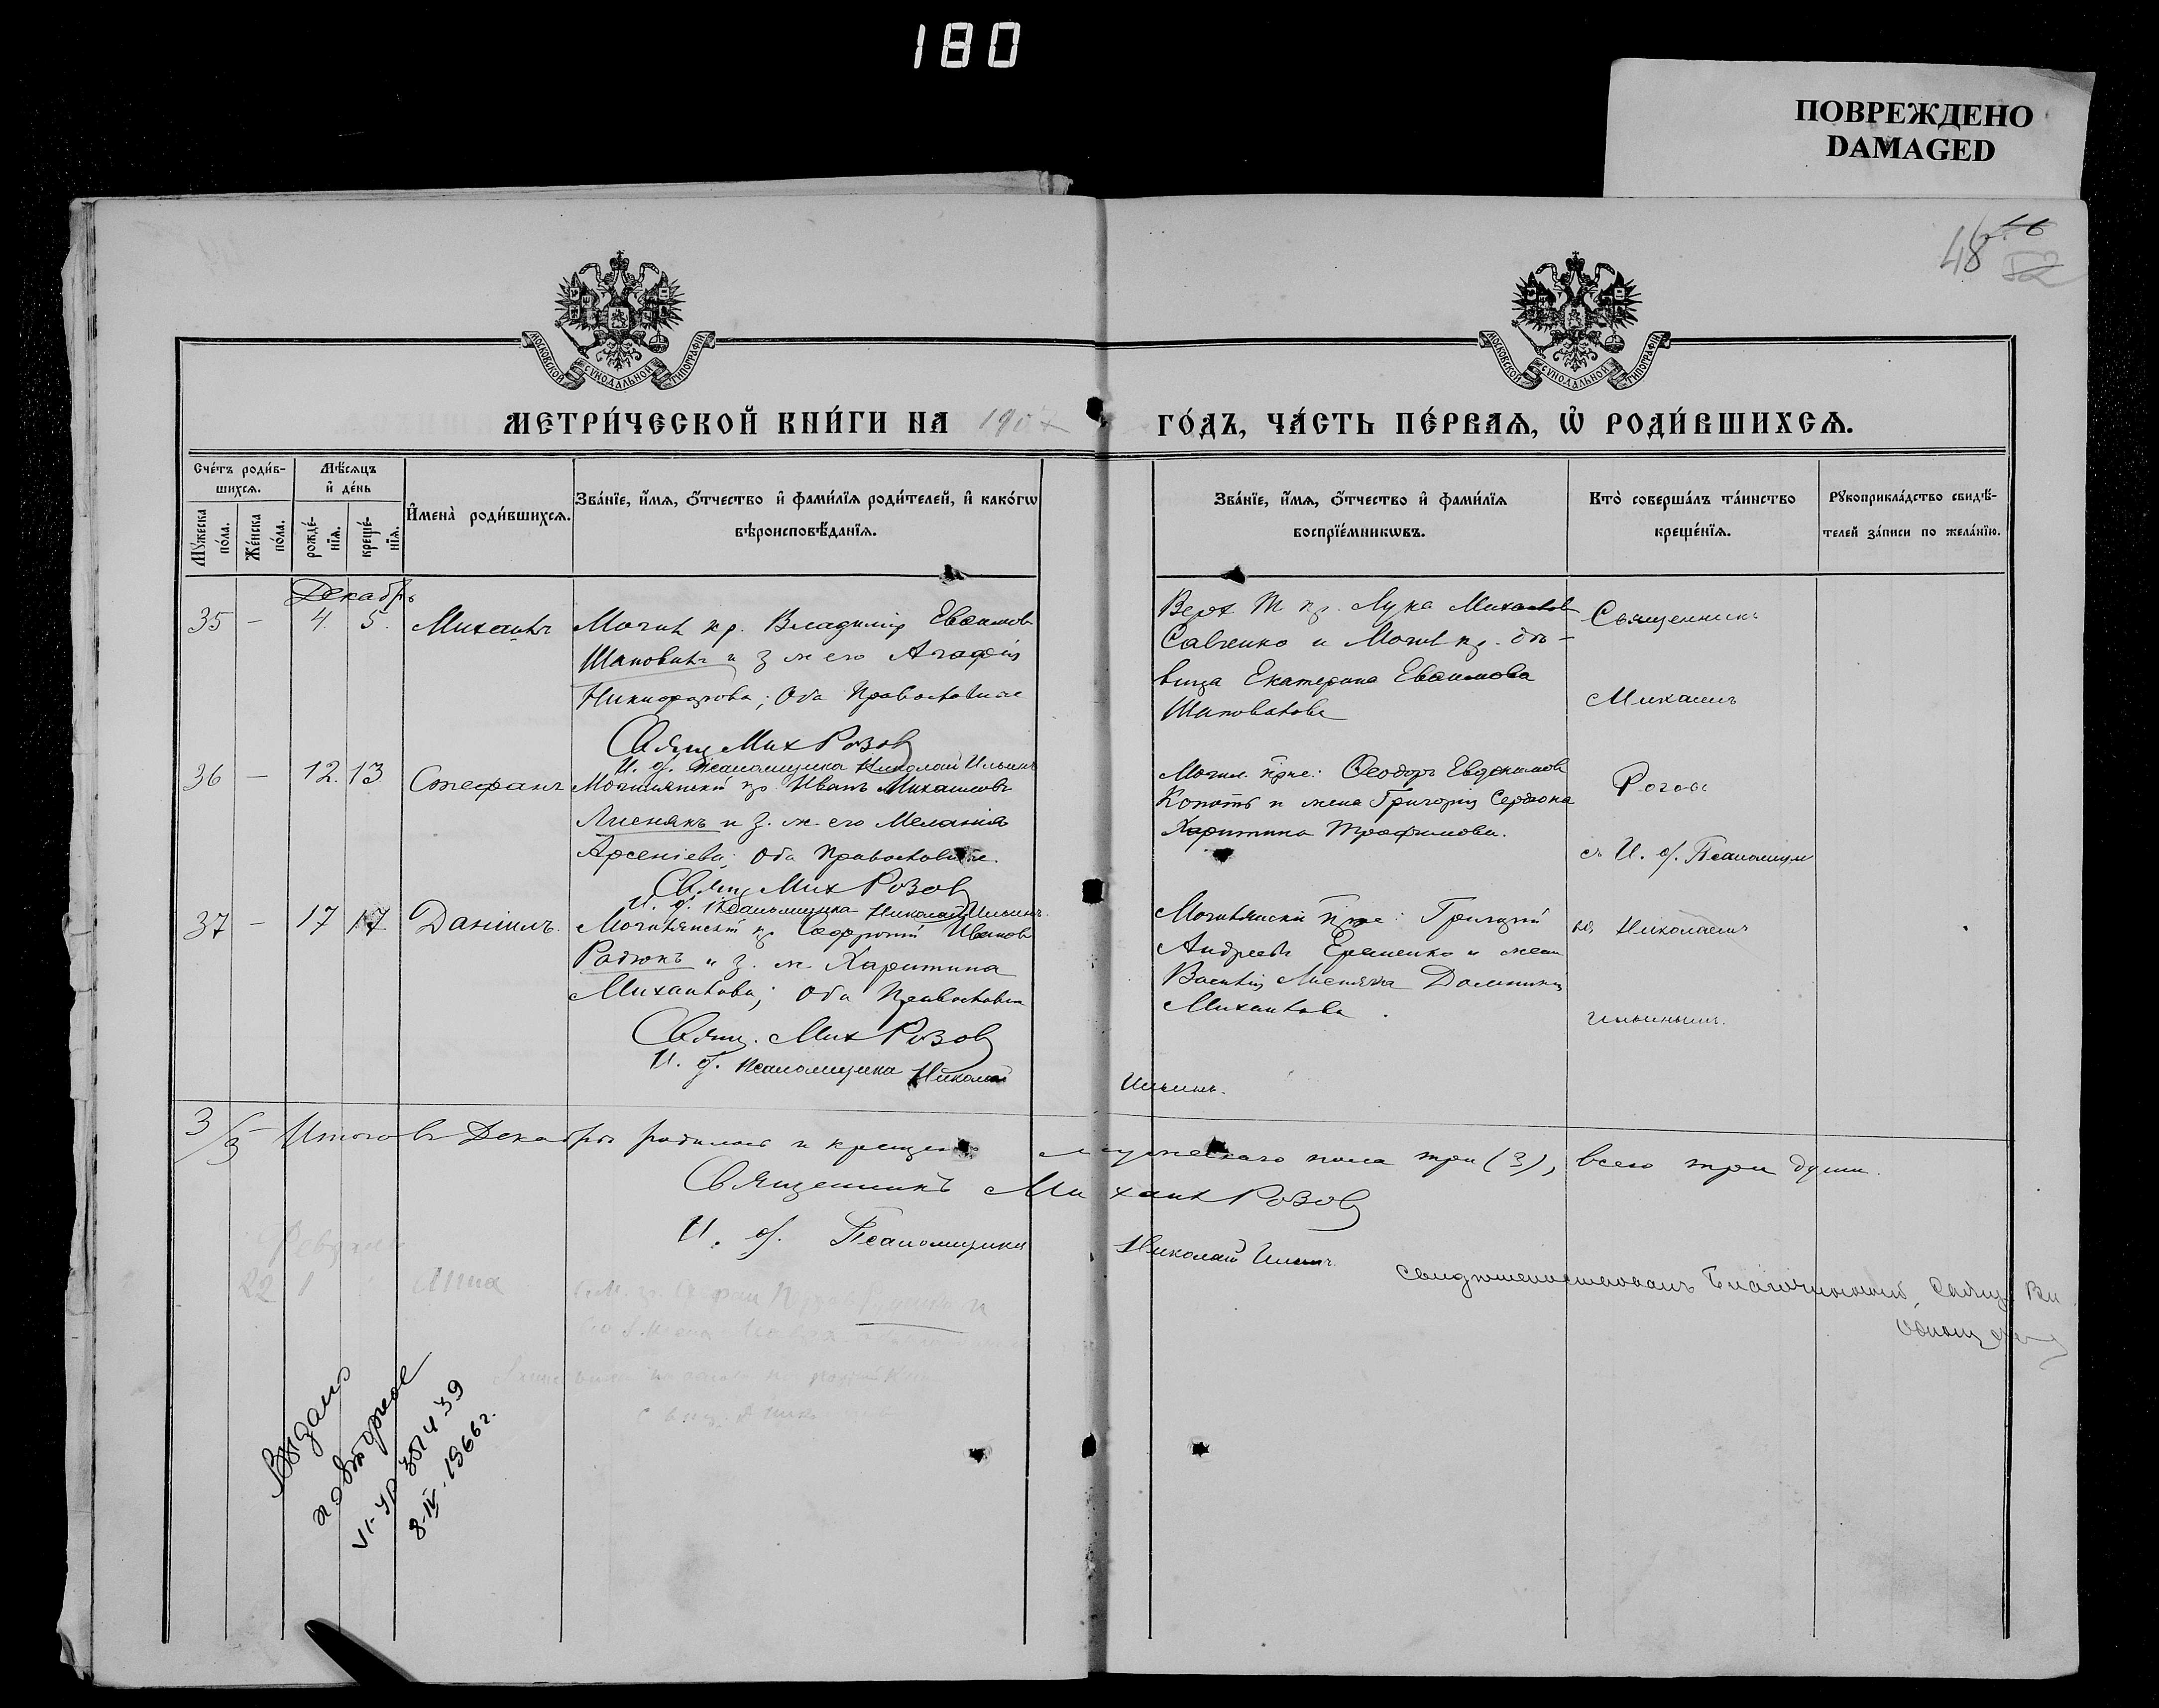 180
ПОВРЕЖДЕНО
DAMAGED
48
52
МОСКОВСКОЙ СУНОДАЛЬНОЙ ТИПОГРАФІИ
МОСКОВСКОЙ СУНОДАЛЬНОЙ ТИПОГРАФІИ
МЕТРИ́ЧЕСКОЙ КНИ́ГИ НА 1907
ГО́ДЪ, ЧА́СТЬ ПЕ́РВАѦ, Ѡ҆ РОДИ́ВШИХСѦ.
Сче́тъ роди́в-
шихсѧ.
Мꙋ́жеска
по́ла.
Же́нска
по́ла.
Мѣ́сѧцъ
и҆ де́нь
рожде́-
нїѧ.
креще́-
нїѧ.
И҆мена̀ роди́вшихсѧ.
Зва́нїе, и҆́мѧ, ѻ҆́тчество и҆ фами́лїѧ роди́телей, и҆ како́гѡ
вѣроисповѣ́данїѧ.
Зва́нїе, и҆́мѧ, ѻ҆́тчество и҆ фами́лїѧ
воспрїе́мникѡвъ.
Кто̀ соверша́лъ та́инство
креще́нїѧ.
Рꙋкоприкла́дство свидѣ́-
телей за́писи по жела́нїю.
Декабрь
35 — 4. 5. Михаилъ
Могил кр. Владимір Евфимов
Шаповалъ и з ж его Агафія
Никифорова; Оба Православные
Свящ Мих Розов
И. об. псаломщика Николай Ильинъ
Верх Т кр. Лука Михаилов
Савченко и Могил кр. дѣ-
вица Екатерина Евфимова
Шаповалова
Священникъ
Михаилъ
36 — 12. 13 Стефанъ
Могилянскій кр Иванъ Михаиловъ
Лиснякъ и з. ж. его Меланія
Арсеніева; Оба Православные.
Свящ Мих Розов
И. об. Псаломщика Николай Ильинъ
Могил. кре: Феодоръ Евдокимов
Копоть и жена Григорія Сердюка
Харитина Трофимова.
Розовъ
съ И. об. Псаломщи
37 — 17 17 Даніилъ.
Могилянскій кр Софроній Иванов
Радюкъ и з. ж. Харитина
Михаилова; Оба Православны
Свящ. Мих Розов
И. об. псаломщика Николай
Ильинъ.
Могилянскій кре: Григорій
Андреевъ Еременко и жена
Василія Лисняка Домникія
Михаилова.
ка Николаемъ
Ильинымъ.
3/3 — Итого въ Декабрѣ родилось и крещено мужескаго пола три (3), всего три души.
Священникъ Михаил Розов
И. об. Псаломщика Николай Ильинъ.
Свидѣтельствовалъ Благочинный, Свящ.
Февраль
22 1 Анна
Выдано
повторное
VI-УР 351439
8-IV-1966г.